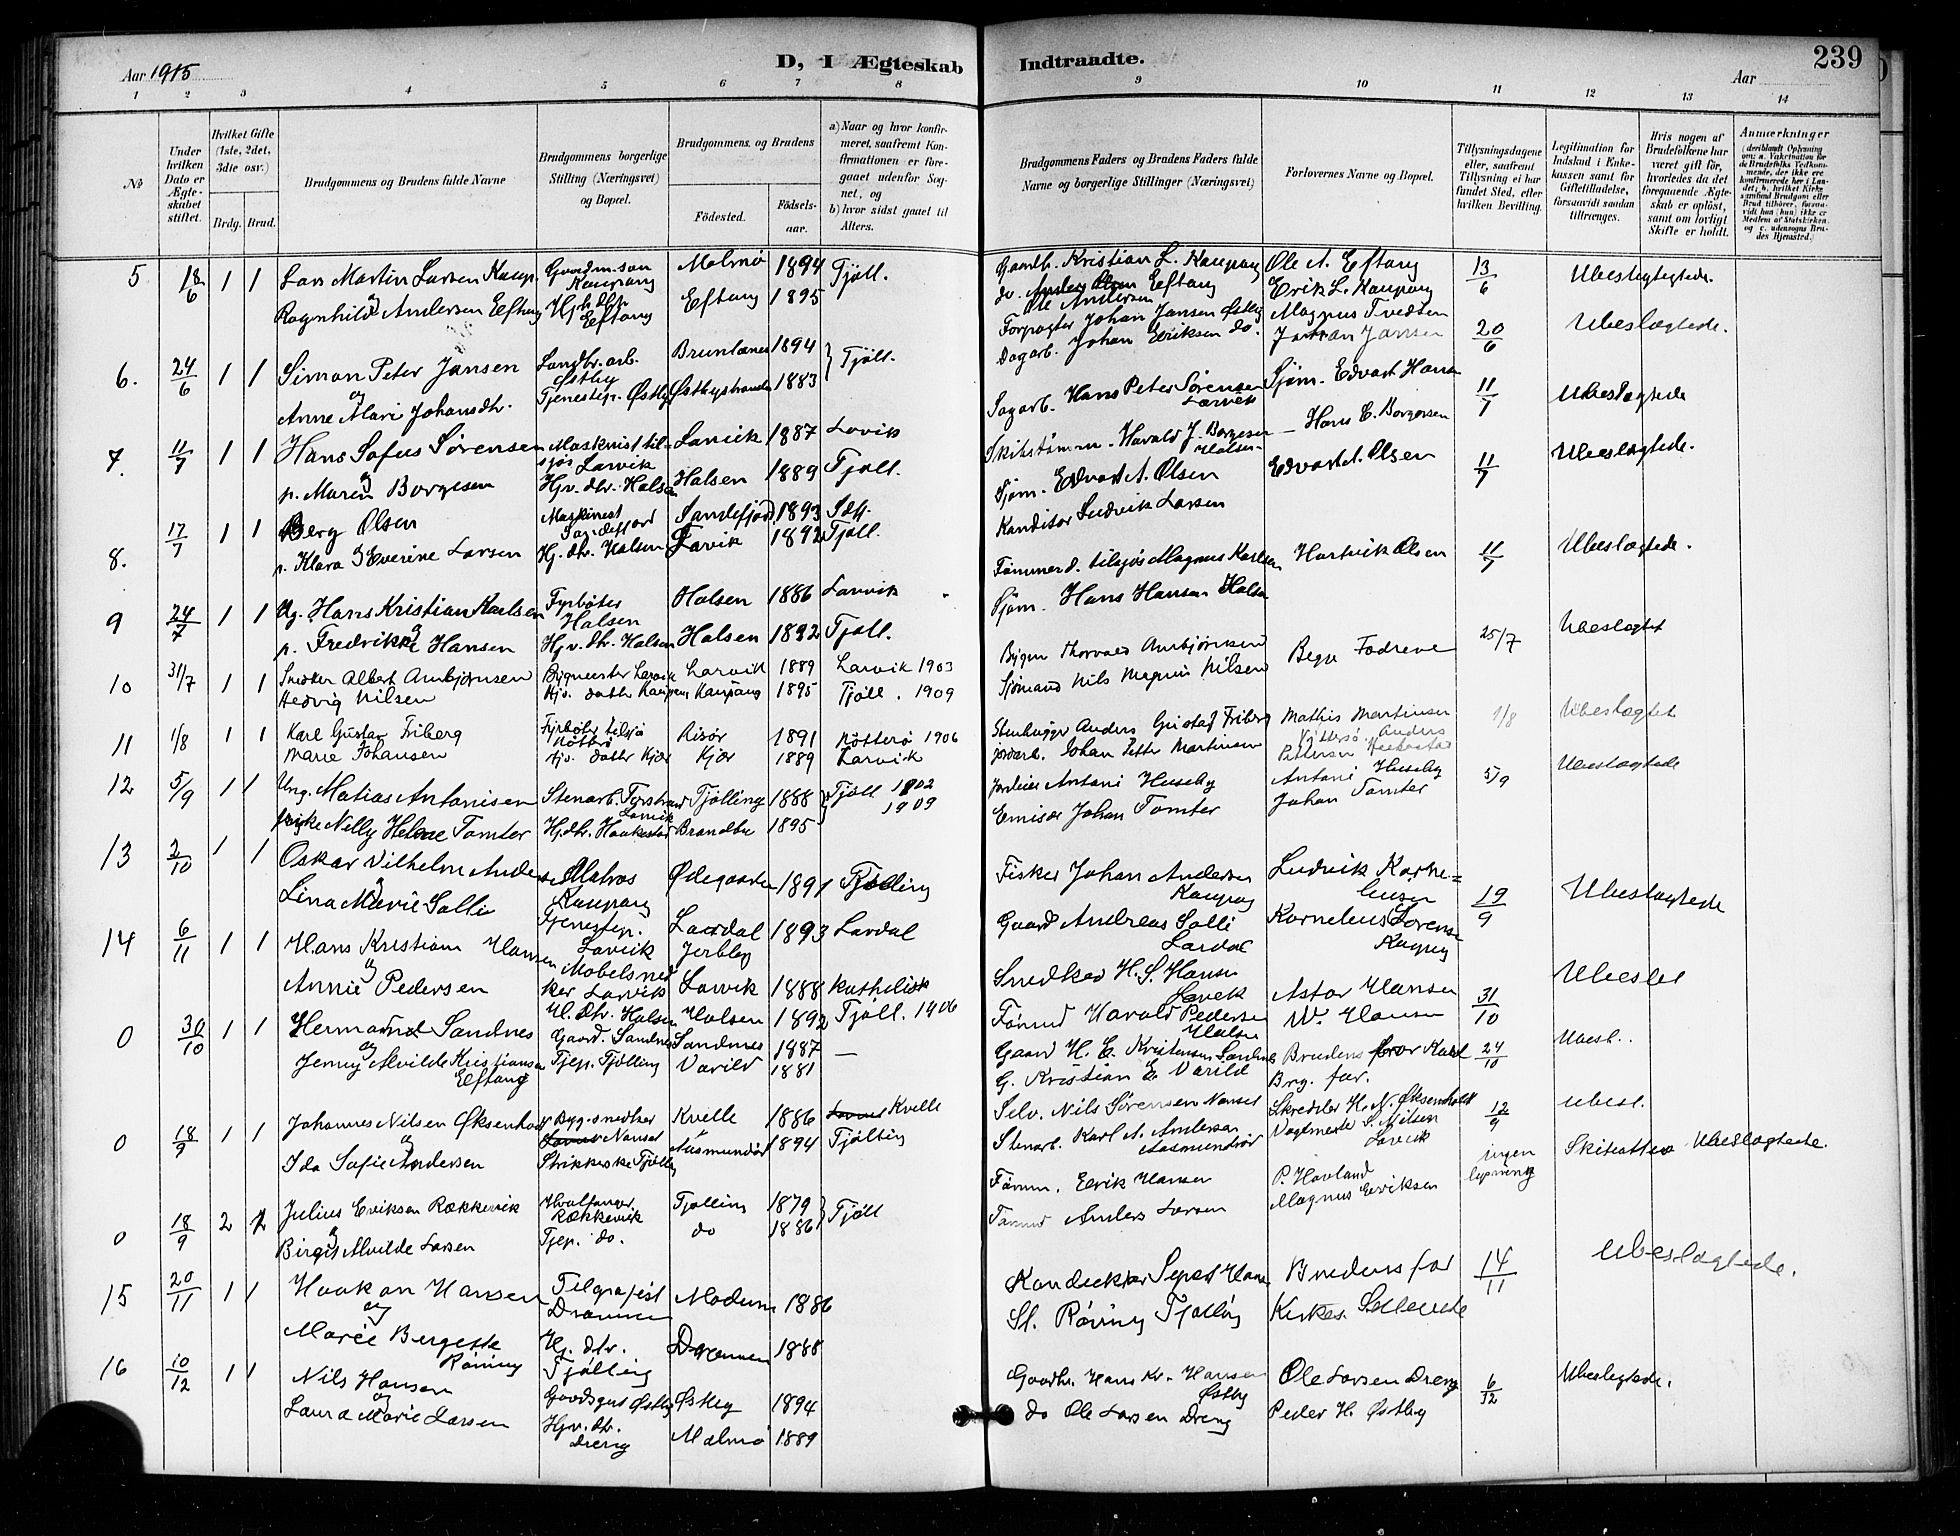 239
Aar 1915
D, I Ægteskab Indtraadte.
Aar
1 2 3 4 5 6 7 8 9 10 11 12 13 14
No
Under hvilken Dato er Ægteskabet stiftet.
Hvilket Gifte (1ste, 2det, 3die osv.)
Brdg. Brud.
Brudgommens og Brudens fulde Navne
Brudgommens borgerlige Stilling (Næringsvei) og Bopæl.
Brudgommens og Brudens
Födested.
Födsels-aar.
a) Naar og hvor konfirmeret, saafremt Konfirmationen er foregaaet udenfor Sognet, og
b) hvor sidst gaaet til Alters.
Brudgommens Faders og Brudens Faders fulde Navne og borgerlige Stillinger (Næringsvei)
Forlovernes Navne og Bopæl.
Tillysningsdagene eller, saafremt Tillysning ei har fundet Sted, efter hvilken Bevilling.
Legitimation for Indskud i Enkekassen samt for Giftetilladelse, forsaavidt saadan tiltrænges.
Hvis nogen af Brudefolkene har været gift før, hvorledes da det foregaaende Ægteskab er oplöst, samt om lovligt Skifte er holdt.
Anmerkninger
5 18/6 1 1 Lars Martin Larsen Kaup. Gaardm. søn Kaupang Malmø 1894 Tjöll. Gaardb. Kristian L. Kaupang Ole A. Eftang 13/6 Ubeslegtede.
og Ragnhild Andersen Eeftang Hjv. dtr. Eeftang Eftang 1895 do. Ole Andersen Eftang Erik L. Kaupang
6. 24/6 1 1 Simon Peter Jansen Landbr. arb. Østby Brunlanes 1894 Tjöll. Forpagter Johan Jansen Østby Magnus Tvedten 20/6 Ubeslægtede.
og Anne Mari Johansdtr. Tjenestep. Østby Østbystranda 1883 Dagarb. Johan Eriksen do. Johan Jansen
7. 11/7 1 1 Hans Sofus Sørensen Maskinist til sjøs Larvik Larvik 1887 Larvik Sagarb. Hans Peter Sørensen Larvik Sjøm. Edvart Hansen 11/7 Ubeslægtede
og p. Maren Borgesen Hjv. dtr. Halsen Halsen 1889 Tjöll. Skibstømm. Harald J. Borgesen Halsen Hans E. Borgersen
8. 17/7 1 1 Berg Olsen Maskinest Sandefjord Sandefjord 1893 Sdfj. Sjøm. Edvart A. Olsen Edvart A. Olsen 11/7 Ubeslægtede.
p. Klara Severine Larsen Hj. dtr. Halsen Larvik 1892 Tjöll. Konditor Ludvik Larsen
9 24/7 1 1 Ug. Hans Kristian Karlsen Fyrbøter Halsen Halsen 1886 Larvik Tømmerd. tilsjøs Magnus Karlsen Hartvik Olsen 11/7 Ubeslægtede.
og p. Fredrikke Hansen Hjv. dtr. Halsen Halsen 1892 Tjöll. Sjøm. Hans Hansen Halsen
10 31/7 1 1 Snedker Albert Anbjørnsen Bygmester Larvik Larvik 1889 Larvik 1903 Bygm Thorvald Anbjørnsen 25/7 Ubeslægtet
Hedvig Nilsen Hjv. datter Kaupang Kaupang 1895 Tjöll. 1909 Sjømand Nils Magnus Nilsen
11 1/8 1 1 Karl Gustav Friberg Fyrbøter tilsjø Nøtterø Risør 1891 Nøtterø 1906 Stenhugger Anders Gustaf Friberg Mathis Martinsen 1/8 Ubeslægtet
Marie Johansen Hjv. datter Kjær Kjær 1889 Larvik Jordarb. Johan Petter Martinsen
12 5/9 1 1 Ung. Matias Antonisen Stenarb. Tjølling 1888 Tjöll 1902 Antoni Huseby Antoni Huseby 5/9 Ubeslægtede
pike Nelly Helene Tomter Hjdtr. Haukestad Brandbu 1895 1909 Emisær Johan Tomter Johan Tomter
13 2/10 1 1 Oskar Vilhelm Andersen Matros Kaupang Ødegaarden 1891 Tjølling Fisker Johan Andersen Kaupang Ludvik Korneliusen 19/9 Ubeslægtede
og Lina Marie Solli Tjenestep. Larvik Lardal 1893 Lardal Gaard Andreas Solli Lardal Kornelius Sørensen Kaupang
14 6/11 1 1 Hans Kristian Hansen Møbelsnedker Larvik Larvik 1888 katholisk Snedker H. S. Hansen Larvik Astor Hansen 31/10 Ubesl
og Annie Pedersen Ul. dtr. Halsen Halsen 1892 Tjöll. 1906 Tømmd Harald Pedersen Halsen W. Hansen
0 30/10 1 1 Hermand Sandnes Gaard. Sandnes Sandnes 1887 — Gaard H. E. Kristensen Sandnes Brudens bror Karl 24/10 Ubesl..
og Jenny Alvilde Kristiansen Eftang Tjep. Tjölling Varild 1881 G. Kristian E. Varild Brg. far.
0 18/9 1 1 Johannes Nilsen Øksenholt Byg. snedker Nanset Kvelle 1886 Kvelle Selv. Nils Sørensen Nanset Skredder H. N. Øksenholt 12/9 Ubesl.
og Ida Sofie Andersen Strikkerske Tjölling Aasmundrød 1894 Tjölling Stenarb. Karl A. Andersen Aasmundrød Vagtmester S. Nilsen Larvik
0 18/9 2 1 Julius Eriksen Rækkevik Hvalfanger Rækkevik Tjölling 1879 Tjöll Tømm. Erik Hansen P. Havland ingen lysning Skifteattest Ubeslægtede.
og Birgit Alvilde Larsen Tjep. do. do 1886 Tømmd Anders Larsen Magnus Eriksen
15 20/11 1 1 Haakon Hansen Telgrafist Drammen Modum 1886 Konduktør Hansen Brudens far 14/11 Ubeslægtede.
og Marie Bergette Röning Hj. dtr. Tjölling Drammen 1888 St. Röning Tjölling
16 10/12 1 1 Nils Hansen Gaardsgut Østby Østby 1894 Gaardbr. Hans Kr. Hansen Østby Ole Larsen Dreng 6/12 Ubeslegtede.
og Laura Marie Larsen Hjv. dtr. Dreng Malmø 1889 do Ole Larsen Dreng Peder H. Østby